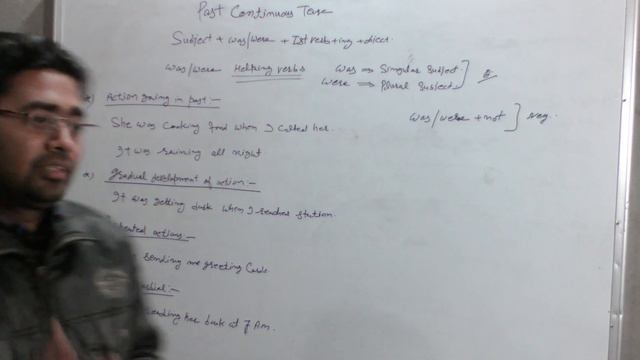 Past Continuous Tense
Subject + was/were + Ist verb + ing + object.
was/were Helping verbs
was ⇒ Singular Subject
were ⇒ Plural Subject
Action going in past :-
was/were + not ] neg.
She was Cooking food when I called her.
It was raining all night
Gradual development of action :-
It was getting dark when I reached station.
actions :-
sending me greeting Cards
her book at 7 Am.